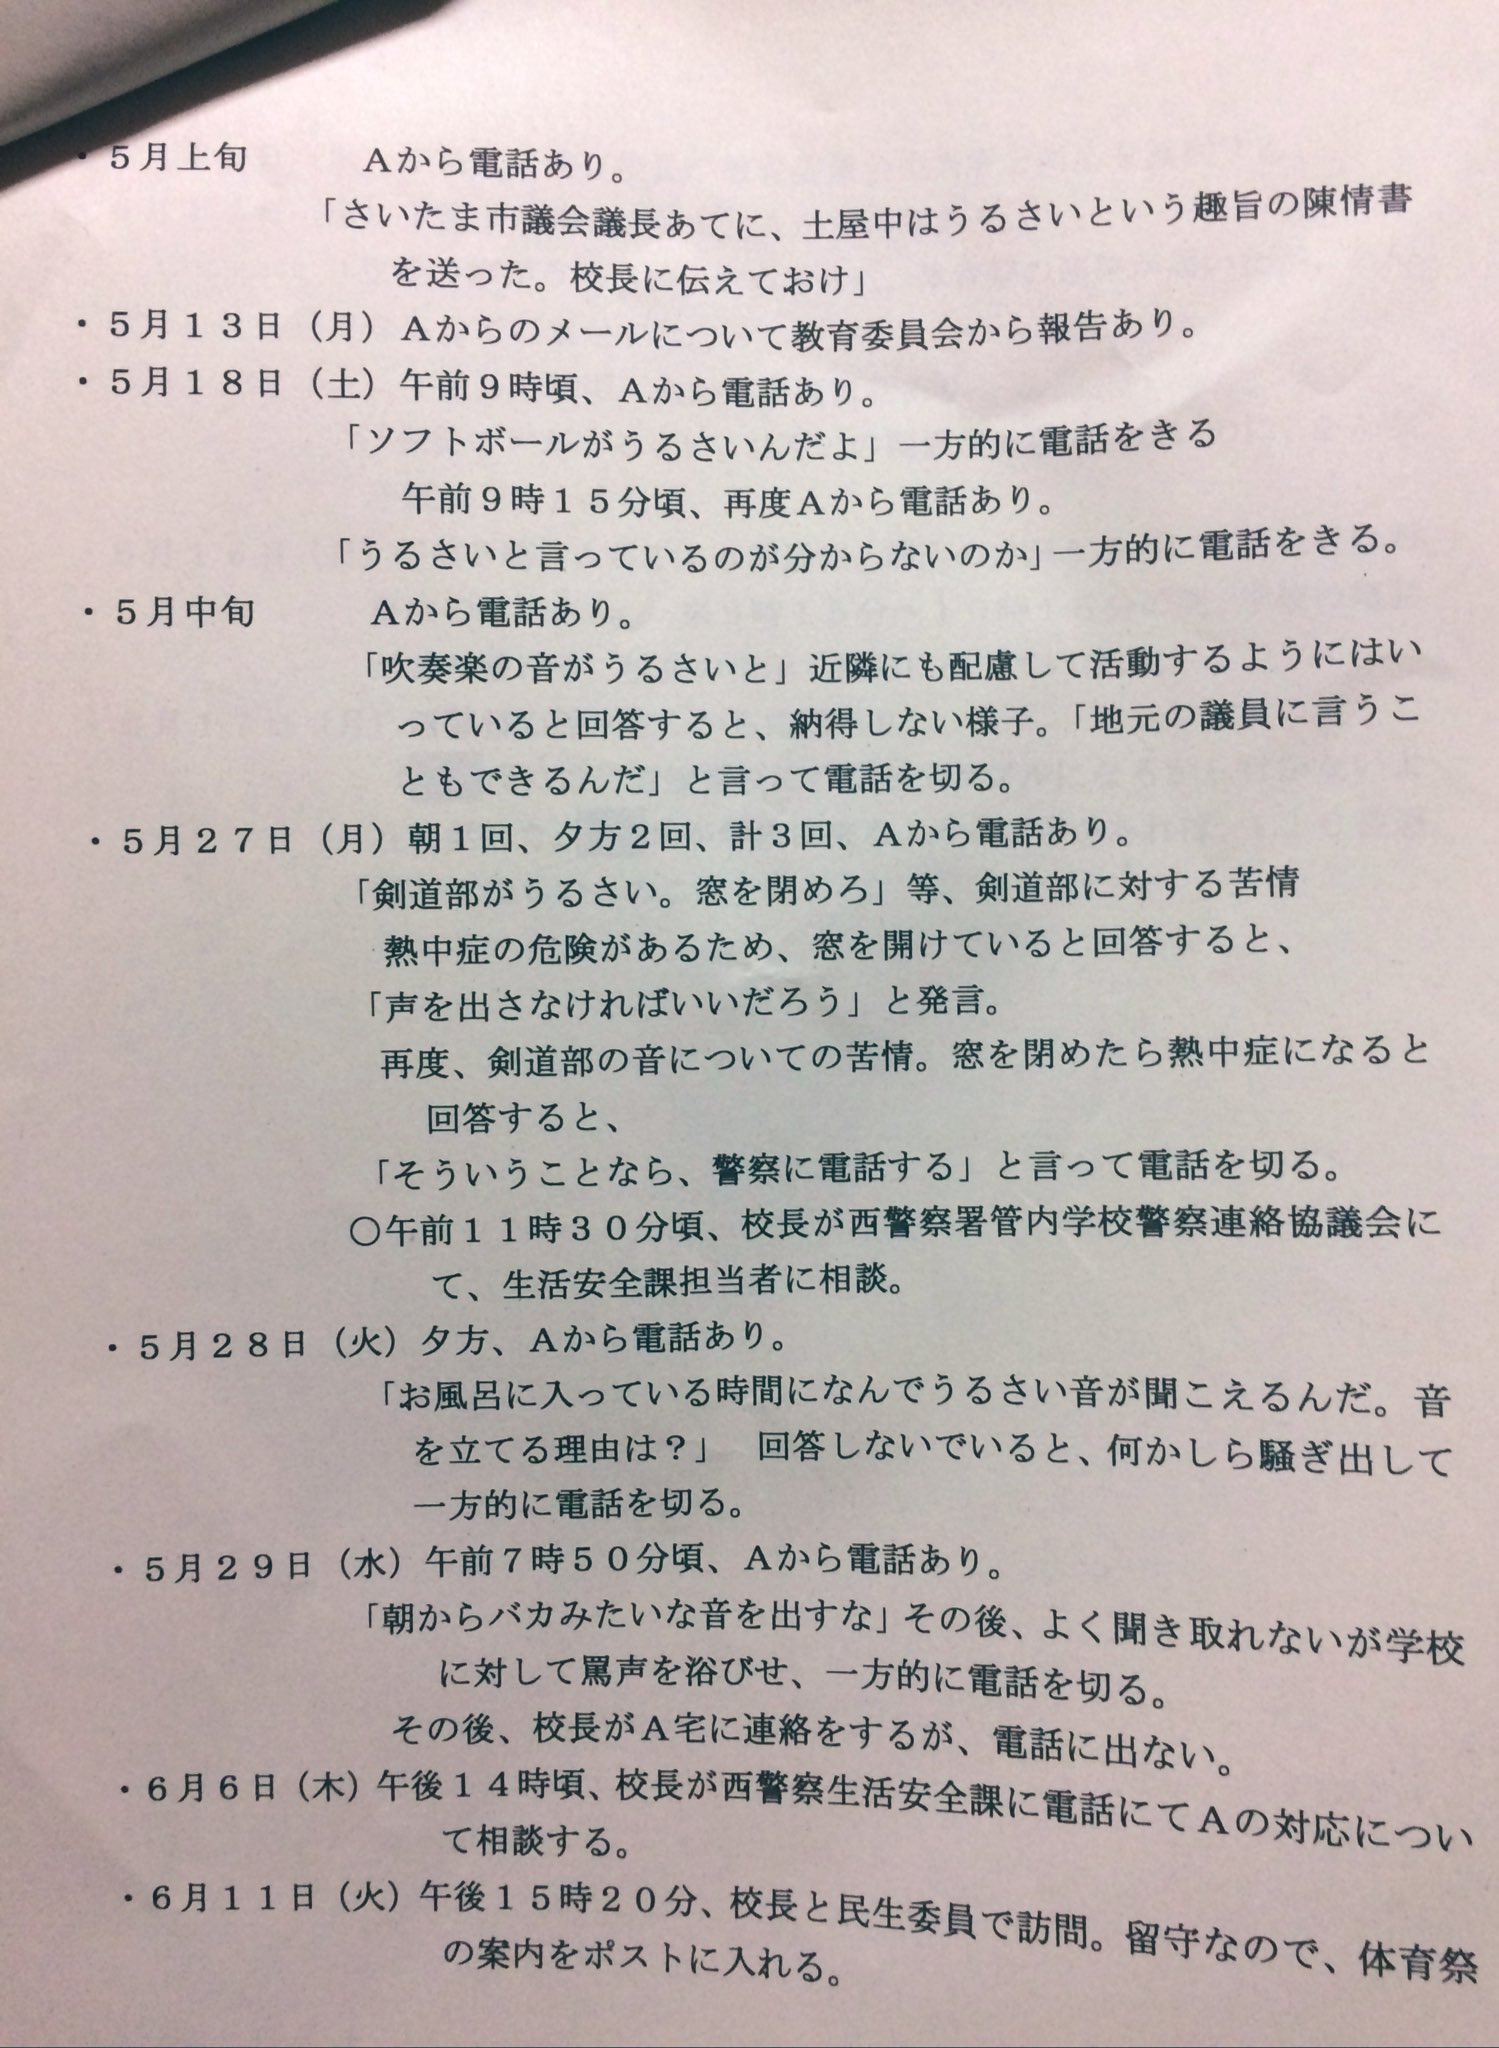 ・５月上旬　　　Ａから電話あり。
「さいたま市議会議長あてに、土屋中はうるさいという趣旨の陳情書
を送った。校長に伝えておけ」
・５月１３日（月）Ａからのメールについて教育委員会から報告あり。
・５月１８日（土）午前９時頃、Ａから電話あり。
「ソフトボールがうるさいんだよ」一方的に電話をきる
午前９時１５分頃、再度Ａから電話あり。
「うるさいと言っているのが分からないのか」一方的に電話をきる。
・５月中旬　　　Ａから電話あり。
「吹奏楽の音がうるさいと」近隣にも配慮して活動するようにはい
っていると回答すると、納得しない様子。「地元の議員に言うこ
ともできるんだ」と言って電話を切る。
・５月２７日（月）朝１回、夕方２回、計３回、Ａから電話あり。
「剣道部がうるさい。窓を閉めろ」等、剣道部に対する苦情
熱中症の危険があるため、窓を開けていると回答すると、
「声を出さなければいいだろう」と発言。
再度、剣道部の音についての苦情。窓を閉めたら熱中症になると
回答すると、
「そういうことなら、警察に電話する」と言って電話を切る。
〇午前１１時３０分頃、校長が西警察署管内学校警察連絡協議会に
て、生活安全課担当者に相談。
・５月２８日（火）夕方、Ａから電話あり。
「お風呂に入っている時間になんでうるさい音が聞こえるんだ。音
を立てる理由は？」　回答しないでいると、何かしら騒ぎ出して
一方的に電話を切る。
・５月２９日（水）午前７時５０分頃、Ａから電話あり。
「朝からバカみたいな音を出すな」その後、よく聞き取れないが学校
に対して罵声を浴びせ、一方的に電話を切る。
その後、校長がＡ宅に連絡をするが、電話に出ない。
・６月６日（木）午後１４時頃、校長が西警察生活安全課に電話にてＡの対応につい
て相談する。
・６月１１日（火）午後１５時２０分、校長と民生委員で訪問。留守なので、体育祭
の案内をポストに入れる。